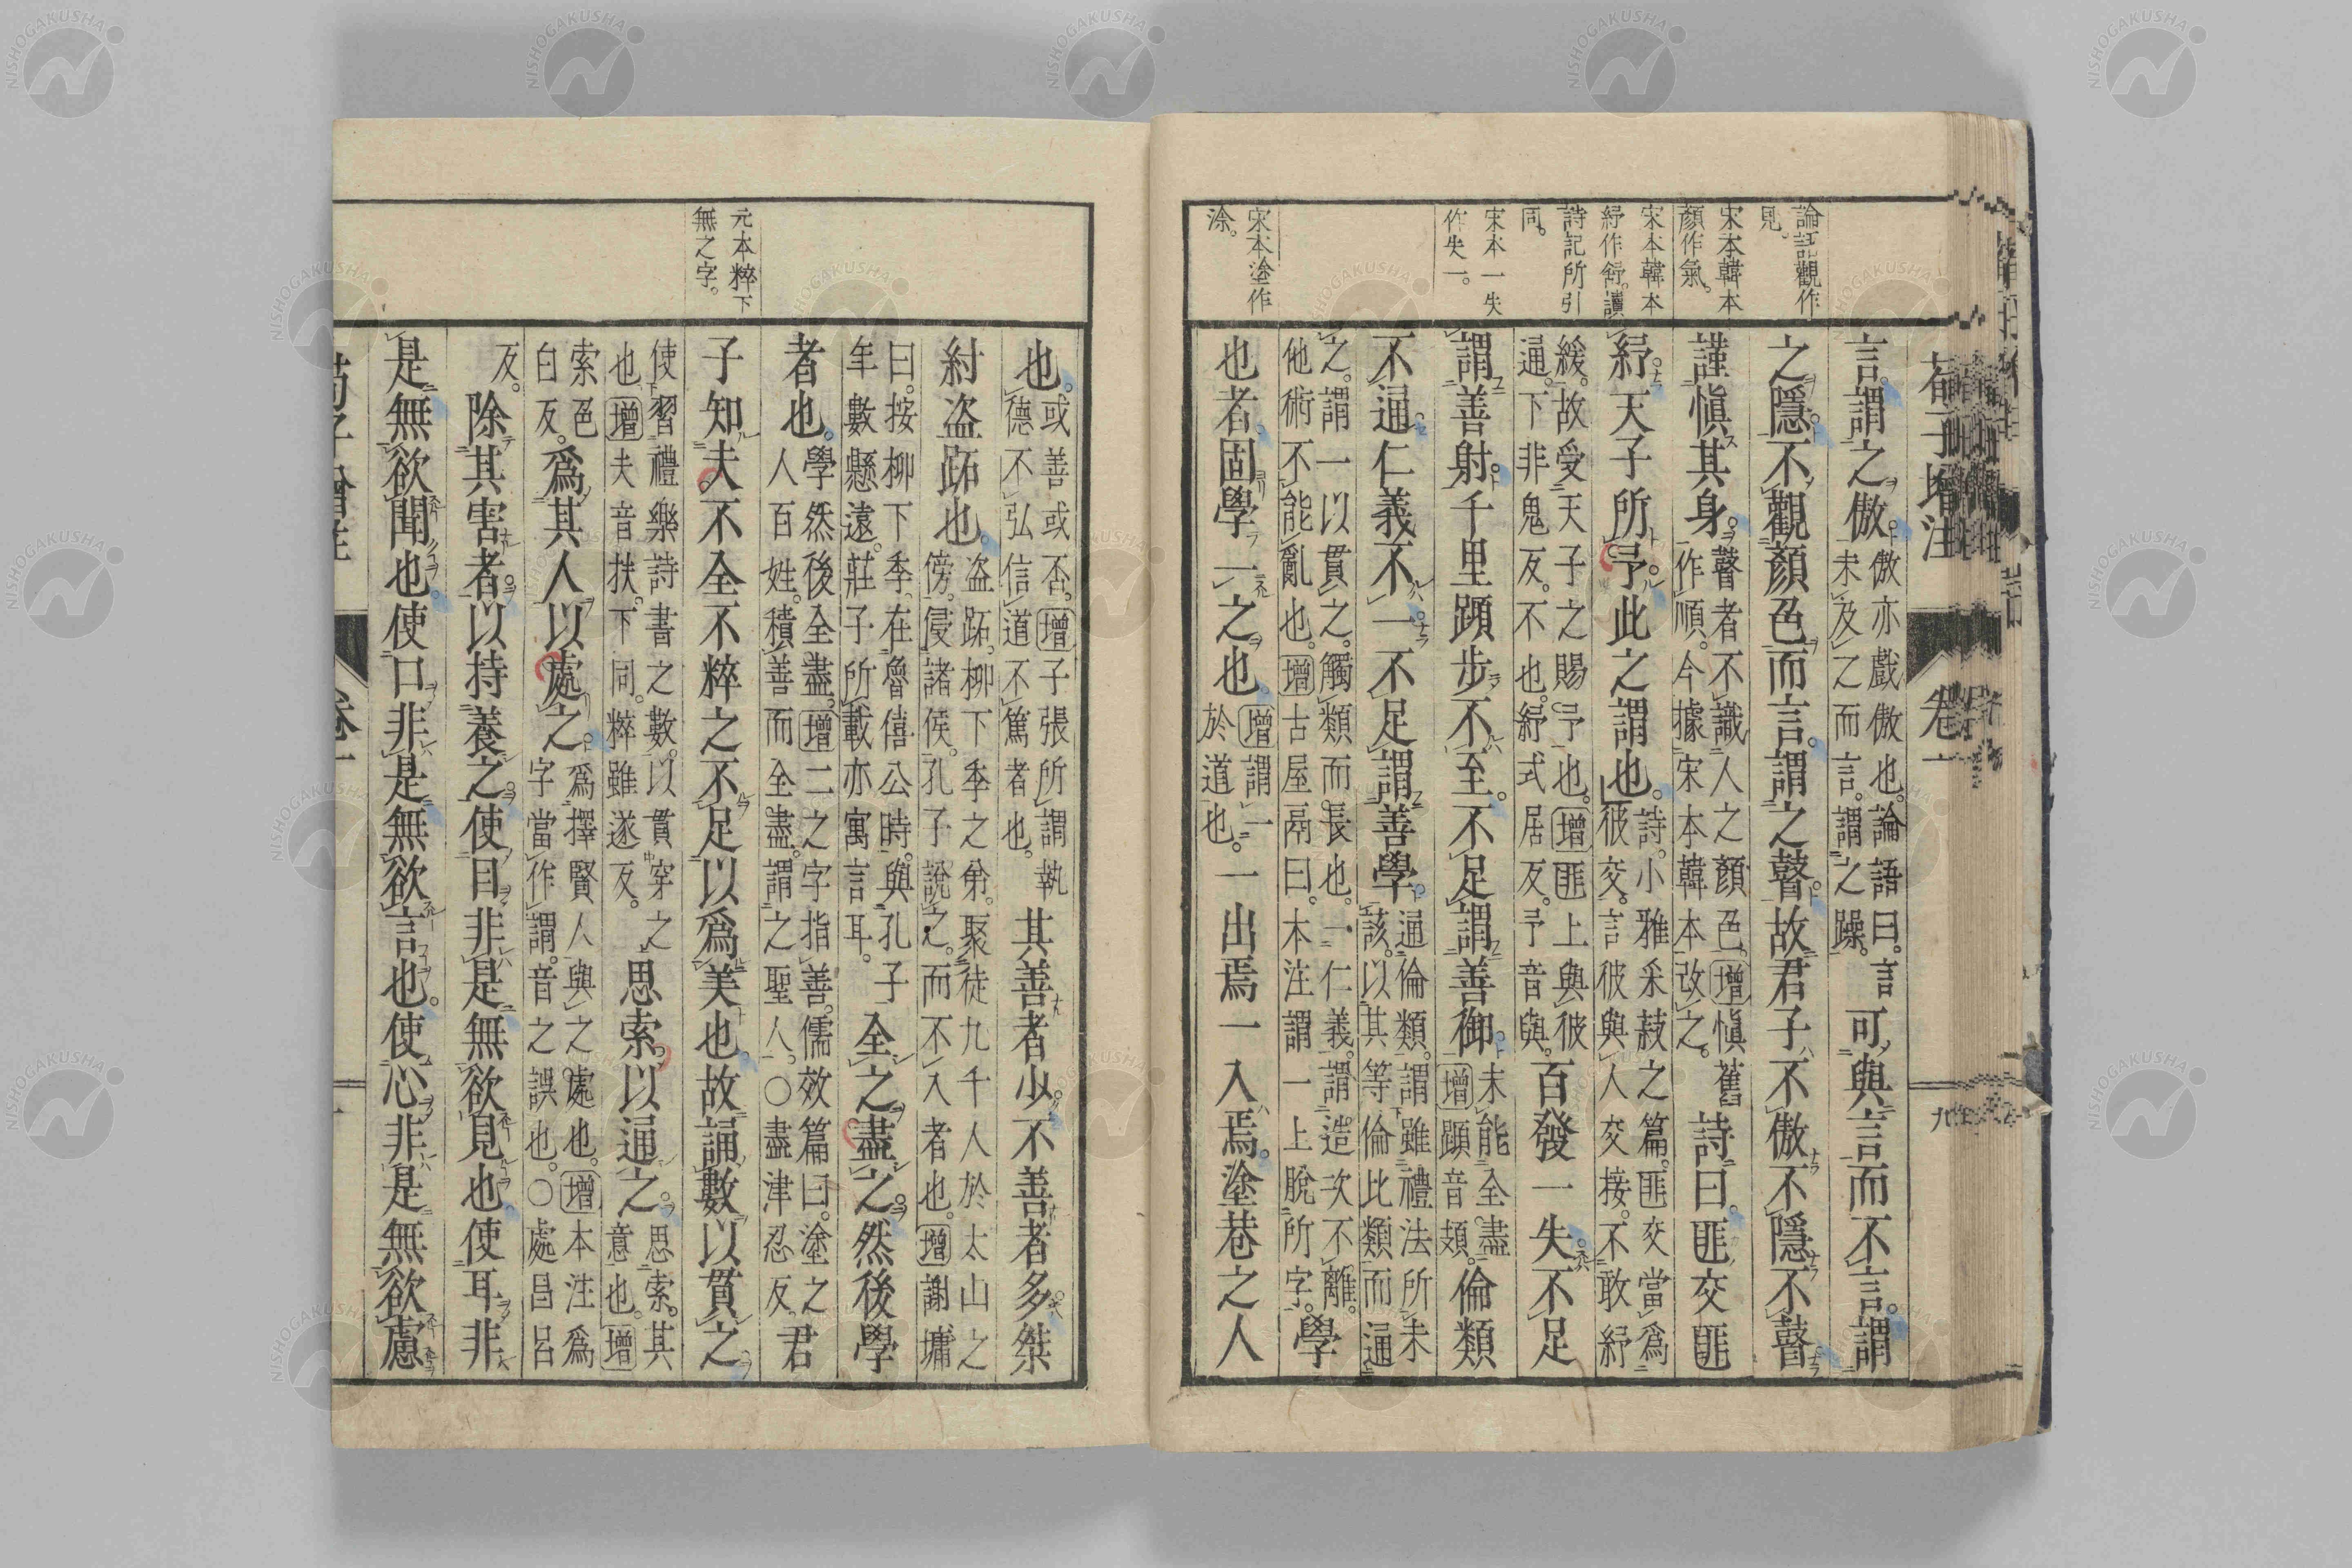 荀子增注
卷一
九
論語觀作
見。
宋本韓本
顏作氣。
宋本韓本
紓作舒。讀
詩記所引
同。
宋本一失
作失一。
宋本塗作
涂。
言。謂之傲。傲亦戲傲也。論語曰。言未及之而言。謂之躁。可與言而不言。謂
之隱。不觀顏色而言。謂之瞽。故君子不傲不隱不瞽
謹愼其身。瞽者不識人之顏色。增愼舊作順。今據宋本韓本改之。詩曰。匪交匪
紓。天子所予。此之謂也。詩。小雅采菽之篇。匪交當爲彼交。言彼與人交接。不敢紓
緩。故受天子之賜予也。增匪上與彼通。下非鬼反。不也。紓式居反。予音與。百發一失。不足
謂善射。千里蹞步不至。不足謂善御。未能全盡增蹞音頍。倫類
不通。仁義不一。不足謂善學。通倫類。謂雖禮法所未該。以其等倫比類而通
之。謂一以貫之。觸類而長也。一仁義。謂造次不離。他術不能亂也。增古屋鬲曰。本注謂一上脫所字。學
也者。固學一之也。增謂一於道也。一出焉一入焉。塗巷之人
元本粹下
無之字。
也。或善或否。增子張所謂執德不弘信道不篤者也。其善者少。不善者多。桀
紂盜跖也。盜跖。柳下季之弟。聚徒九千人於太山之傍。侵諸侯。孔子說之。而不入者也。增謝墉
曰。按柳下季。在魯僖公時。與孔子年數懸遠。莊子所載亦寓言耳。全之盡之。然後學
者也。學然後全盡。增二之字指善。儒效篇曰。塗之人百姓。積善而全盡。謂之聖人。○盡津忍反。君
子知夫不全不粹之不足以爲美也。故誦數以貫之
使習禮樂詩書之數。以貫穿之也增夫音扶。下同。粹雖遂反。思索以通之。思索。其意也。增
索色白反。爲其人以處之。爲擇賢人。與之處也。增本注爲字當作謂。音之誤也。○處昌呂
反。除其害者。以持養之。使目非是無欲見也使耳非
是無欲聞也。使口非是無欲言也。使心非是無欲慮